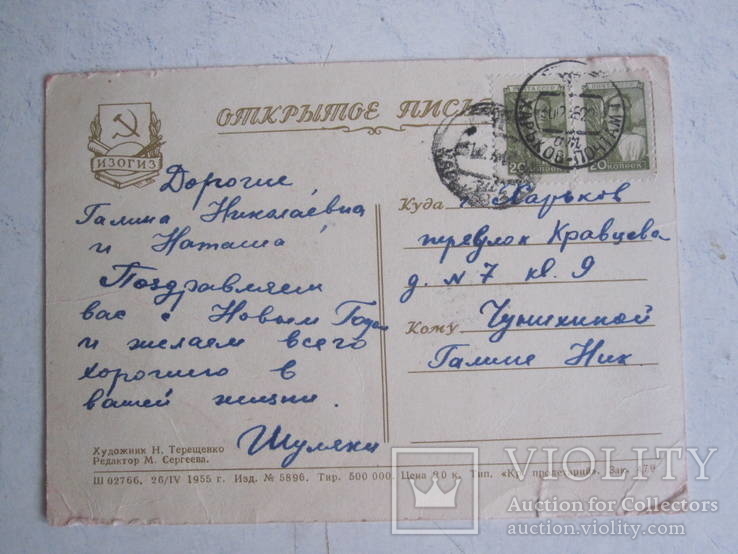 ОТКРЫТОЕ ПИСЬ
ИЗОГИЗ
ПОЧТА СССР
20 КОПЕЕК
20 КОПЕЕК
ХАРЬКОВ-ПОЧТАМТ
Дорогие
Галина Николаевна
и Наташа
Поздравляем
вас с Новым Годом
и желаем всего
хорошего в
вашей жизни.
Шуляки
Куда Харьков
переулок Кравцева
д. N 7 кв. 9
Кому
Галине Ник.
Художник Н. Терещенко
Редактор М. Сергеева.
Ш 02766. 26/IV 1955 г. Изд. № 5896. Тир. 500 000. Цена 60 к. Тип. «Кр. пролетарий». Зак. 479
VIOLITY
Auction for Collectors
auction.violity.com